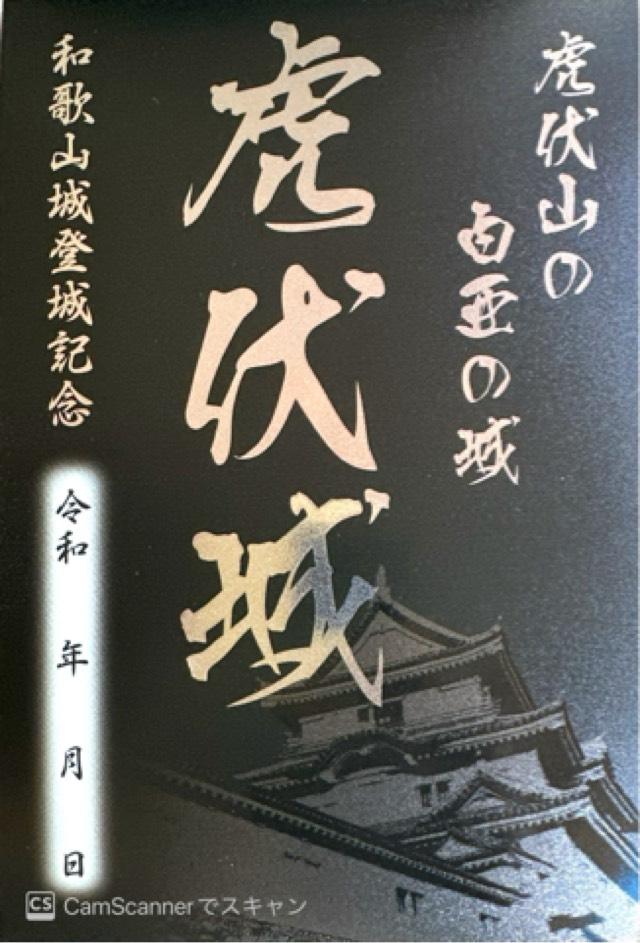 虎伏山の
白亜の城
虎伏城
和歌山城登城記念
令和 年 月 日
CS CamScannerでスキャン